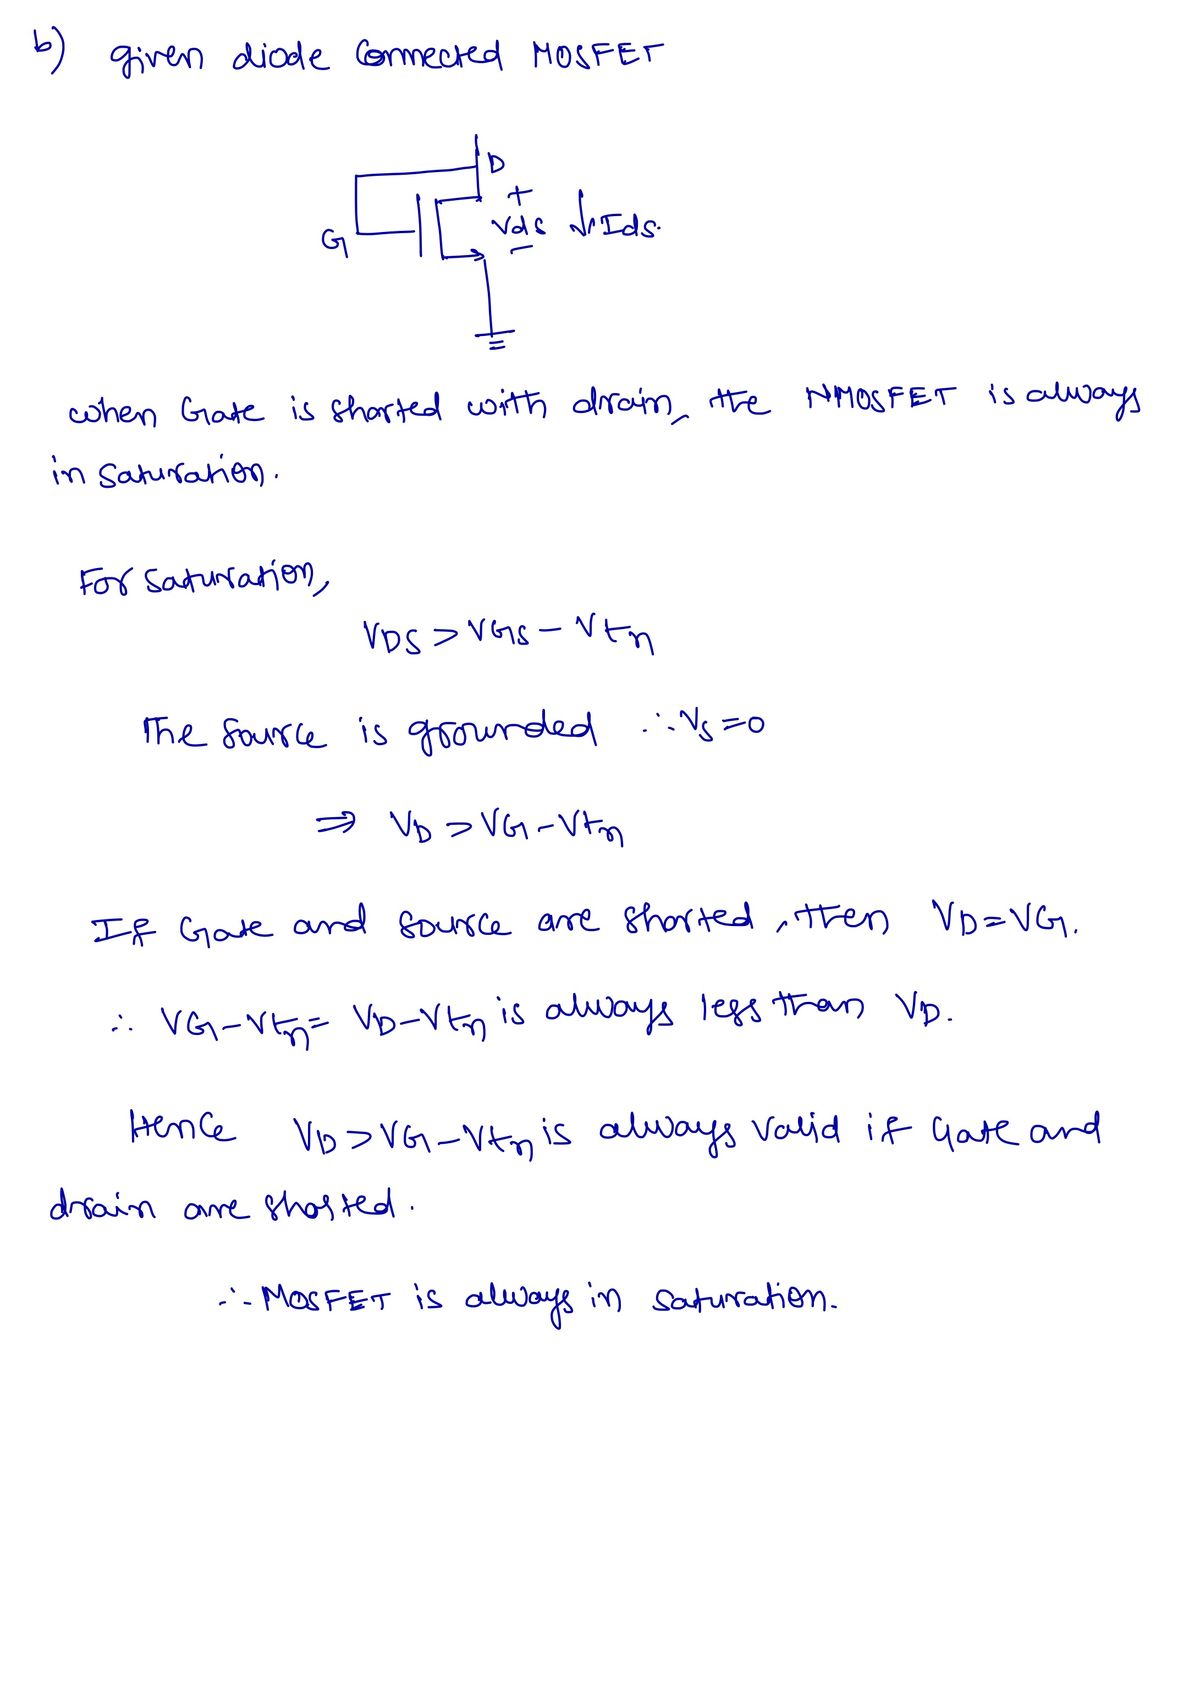 b) given diode Connected MOSFET
D
+
G Vds ↓ Ids.
−
when Gate is shorted with drain, the NMOSFET is always
in saturation.
For saturation,
VDS > VGS − Vtn
The source is grounded ∴ Vs = 0
⇒ VD > VG − Vtn
If Gate and source are shorted, then VD = VG.
∴ VG − Vtn = VD − Vtn is always less than VD.
Hence VD > VG − Vtn is always valid if Gate and
drain are shorted.
∴ MOSFET is always in saturation.